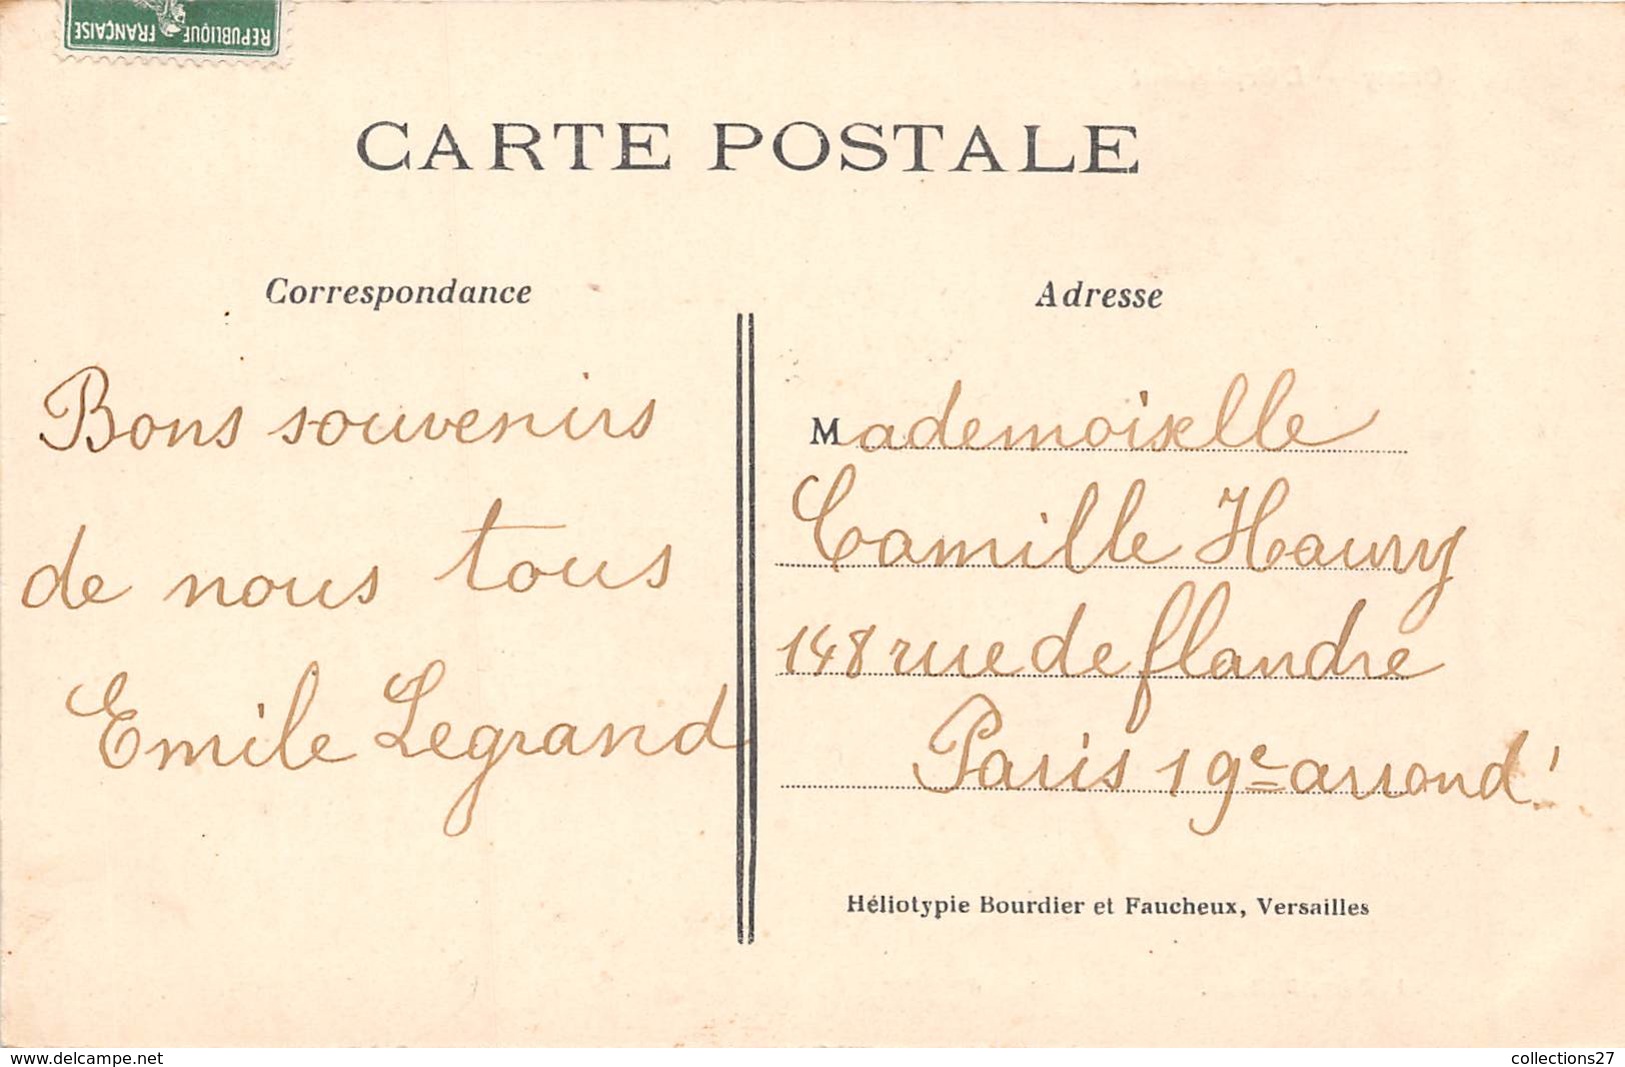 REPUBLIQUE FRANÇAISE
CARTE POSTALE
Correspondance
Bons souvenirs
de nous tous
Emile Legrand
Adresse
Mademoiselle
Camille Haury
148 rue de flandre
Paris 19e arrond!
Héliotypie Bourdier et Faucheux, Versailles
www.delcampe.net
collections27